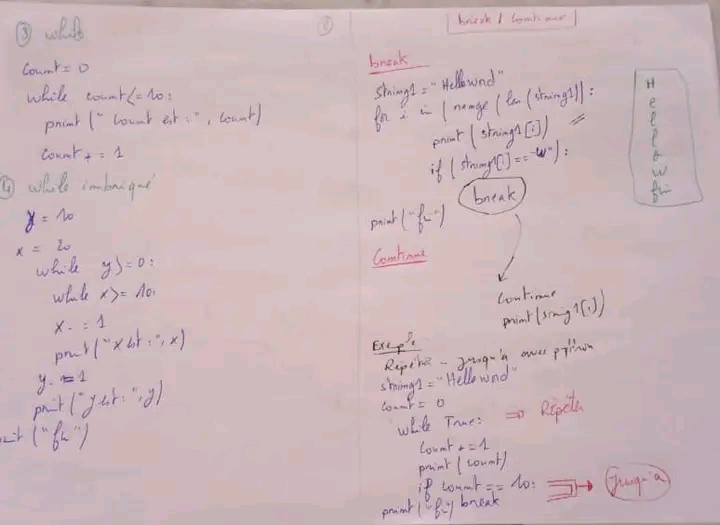 ③ while
count = 0
while count <= 10:
print (" count est : ", count)
count + = 1
④ while imbriqué
y = 10
x = 20
while y >= 0:
while x >= 10:
x - = 1
print ("x est : ", x)
y - = 1
print ("y est : ", y)
print ("fin")
break / Continue
break
string1 = "Hello wrld"
for i in ( range ( len ( string1)):
print ( string1 [i])
if ( string1 [i] == "w"):
break
print ("fin")
H
e
l
l
o
w
fin
Continue
continue
print(string1[i])
Exemple
Répéter - jusqu'à avec python
string1 = "Hello wrld"
count = 0
while True: ⇒ Répéter
count + = 1
print ( count)
if count == 10: → jusqu'à
print ("fin") break